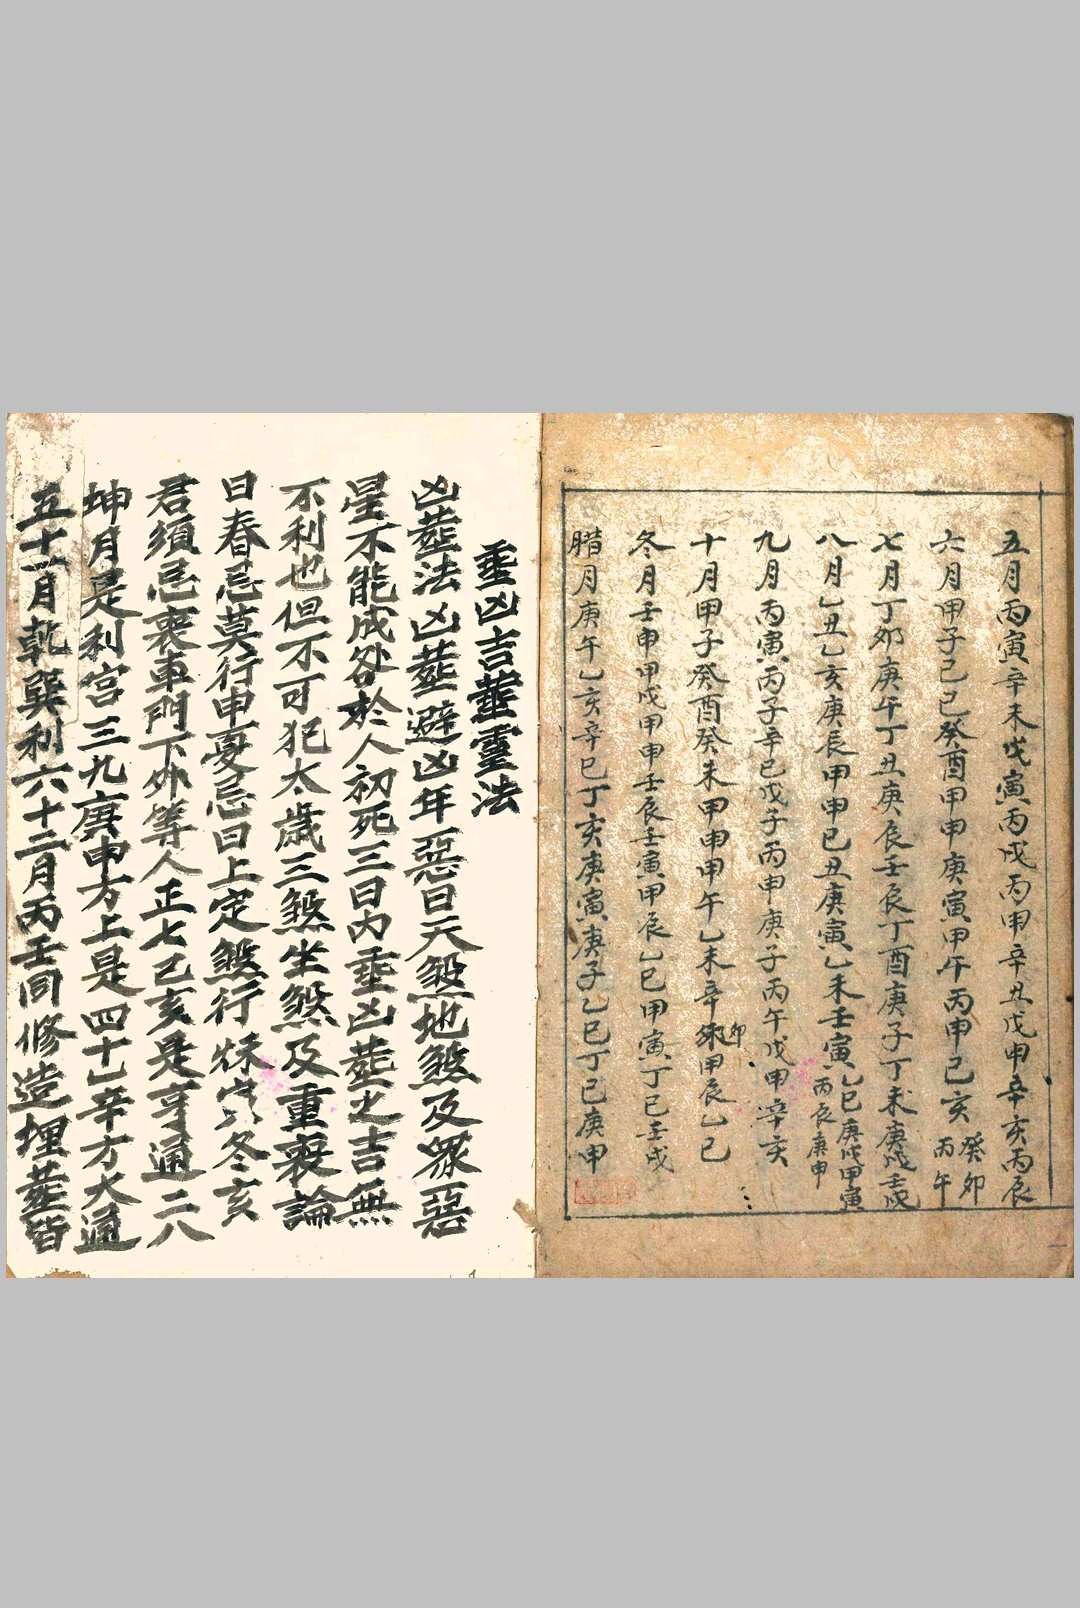 五月丙寅辛未戊寅丙戌丙甲辛丑戊申辛亥丙辰
六月甲子己巳癸酉甲申庚寅甲午丙申己亥癸卯丙午
七月丁卯庚午丁丑庚辰壬辰丁酉庚子丁未庚戌壬戌
八月乙丑乙亥庚辰甲申己丑庚寅乙未壬寅乙巳庚戌甲寅丙辰庚申
九月丙寅丙子辛巳戊子丙申庚子丙午戊申辛亥
十月甲子癸酉癸未甲申甲午乙未辛卯甲辰乙巳
冬月壬申甲戌甲申壬辰壬寅甲辰乙巳甲寅丁巳壬戌
腊月庚午乙亥辛巳丁亥庚寅庚子乙巳丁巳庚申
乗凶吉葬靈法
凶葬法凶葬避凶年惡日天煞地煞及眾惡
星不能成咎於人初死三日内乗凶葬之吉無
不利也但不可犯太歲三煞坐煞及重喪論
日春忌莫行申夏忌日上定煞行秋冬亥
君須忌喪車門下外等人正七己亥是亨通二八
坤月是利宫三九庚申方上是四十乙辛方大通
五十一月乾巽利六十二月丙壬同修造埋葬皆